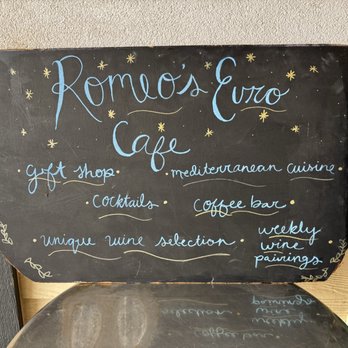 Romeo's Euro
Cafe
• gift shop • mediterranean cuisine
• cocktails • coffee bar
• unique wine selection • weekly
wine
pairings